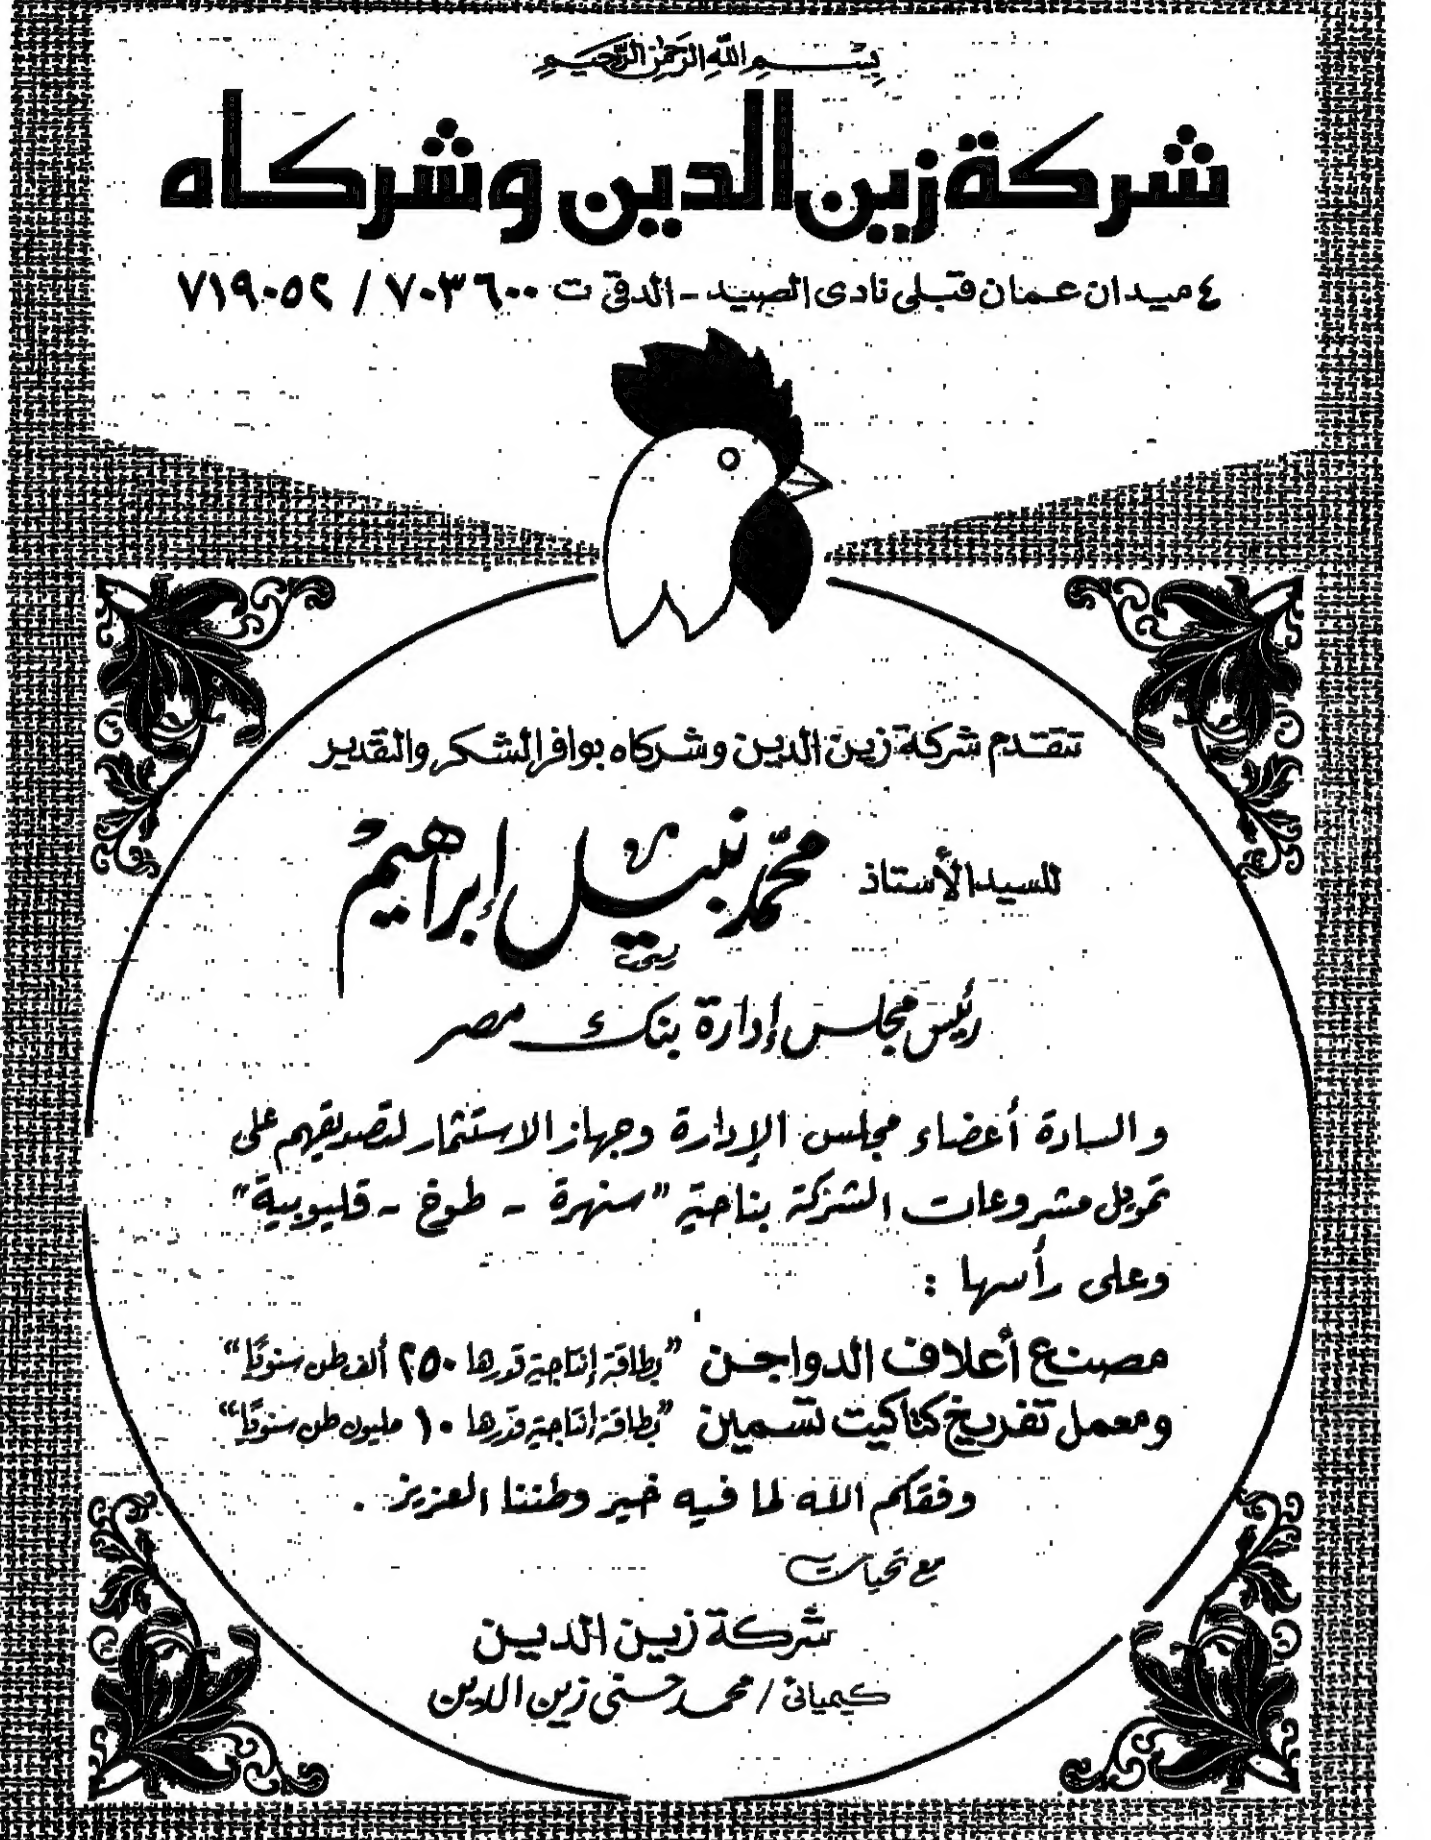 بسم الله الرحمن الرحيم
شركة زين الدين وشركاه
٤ ميدان عمان قبلى نادى الصيد - الدقى ت ٧٠٣٦٠٠ / ٧١٩٠٥٢
تتقدم شركة زين الدين وشركاه بوافر الشكر والتقدير
للسيد الأستاذ محمد نبيل إبراهيم
رئيس مجلس إدارة بنك مصر
والسادة أعضاء مجلس الإدارة وجهاز الاستثمار لتصديقهم على
تمويل مشروعات الشركة بناحية "سنهرة - طوخ - قليوبية"
وعلى رأسها :
مصنع أعلاف الدواجن "بطاقة إنتاجية قدرها ٢٥٠ ألف طن سنويًا"
ومعمل تفريخ كتاكيت تسمين "بطاقة إنتاجية قدرها ١٠ مليون طن سنويًا"
وفقكم الله لما فيه خير وطننا العزيز .
مع تحيات
شركة زين الدين
كيميائى / محمد حسنى زين الدين